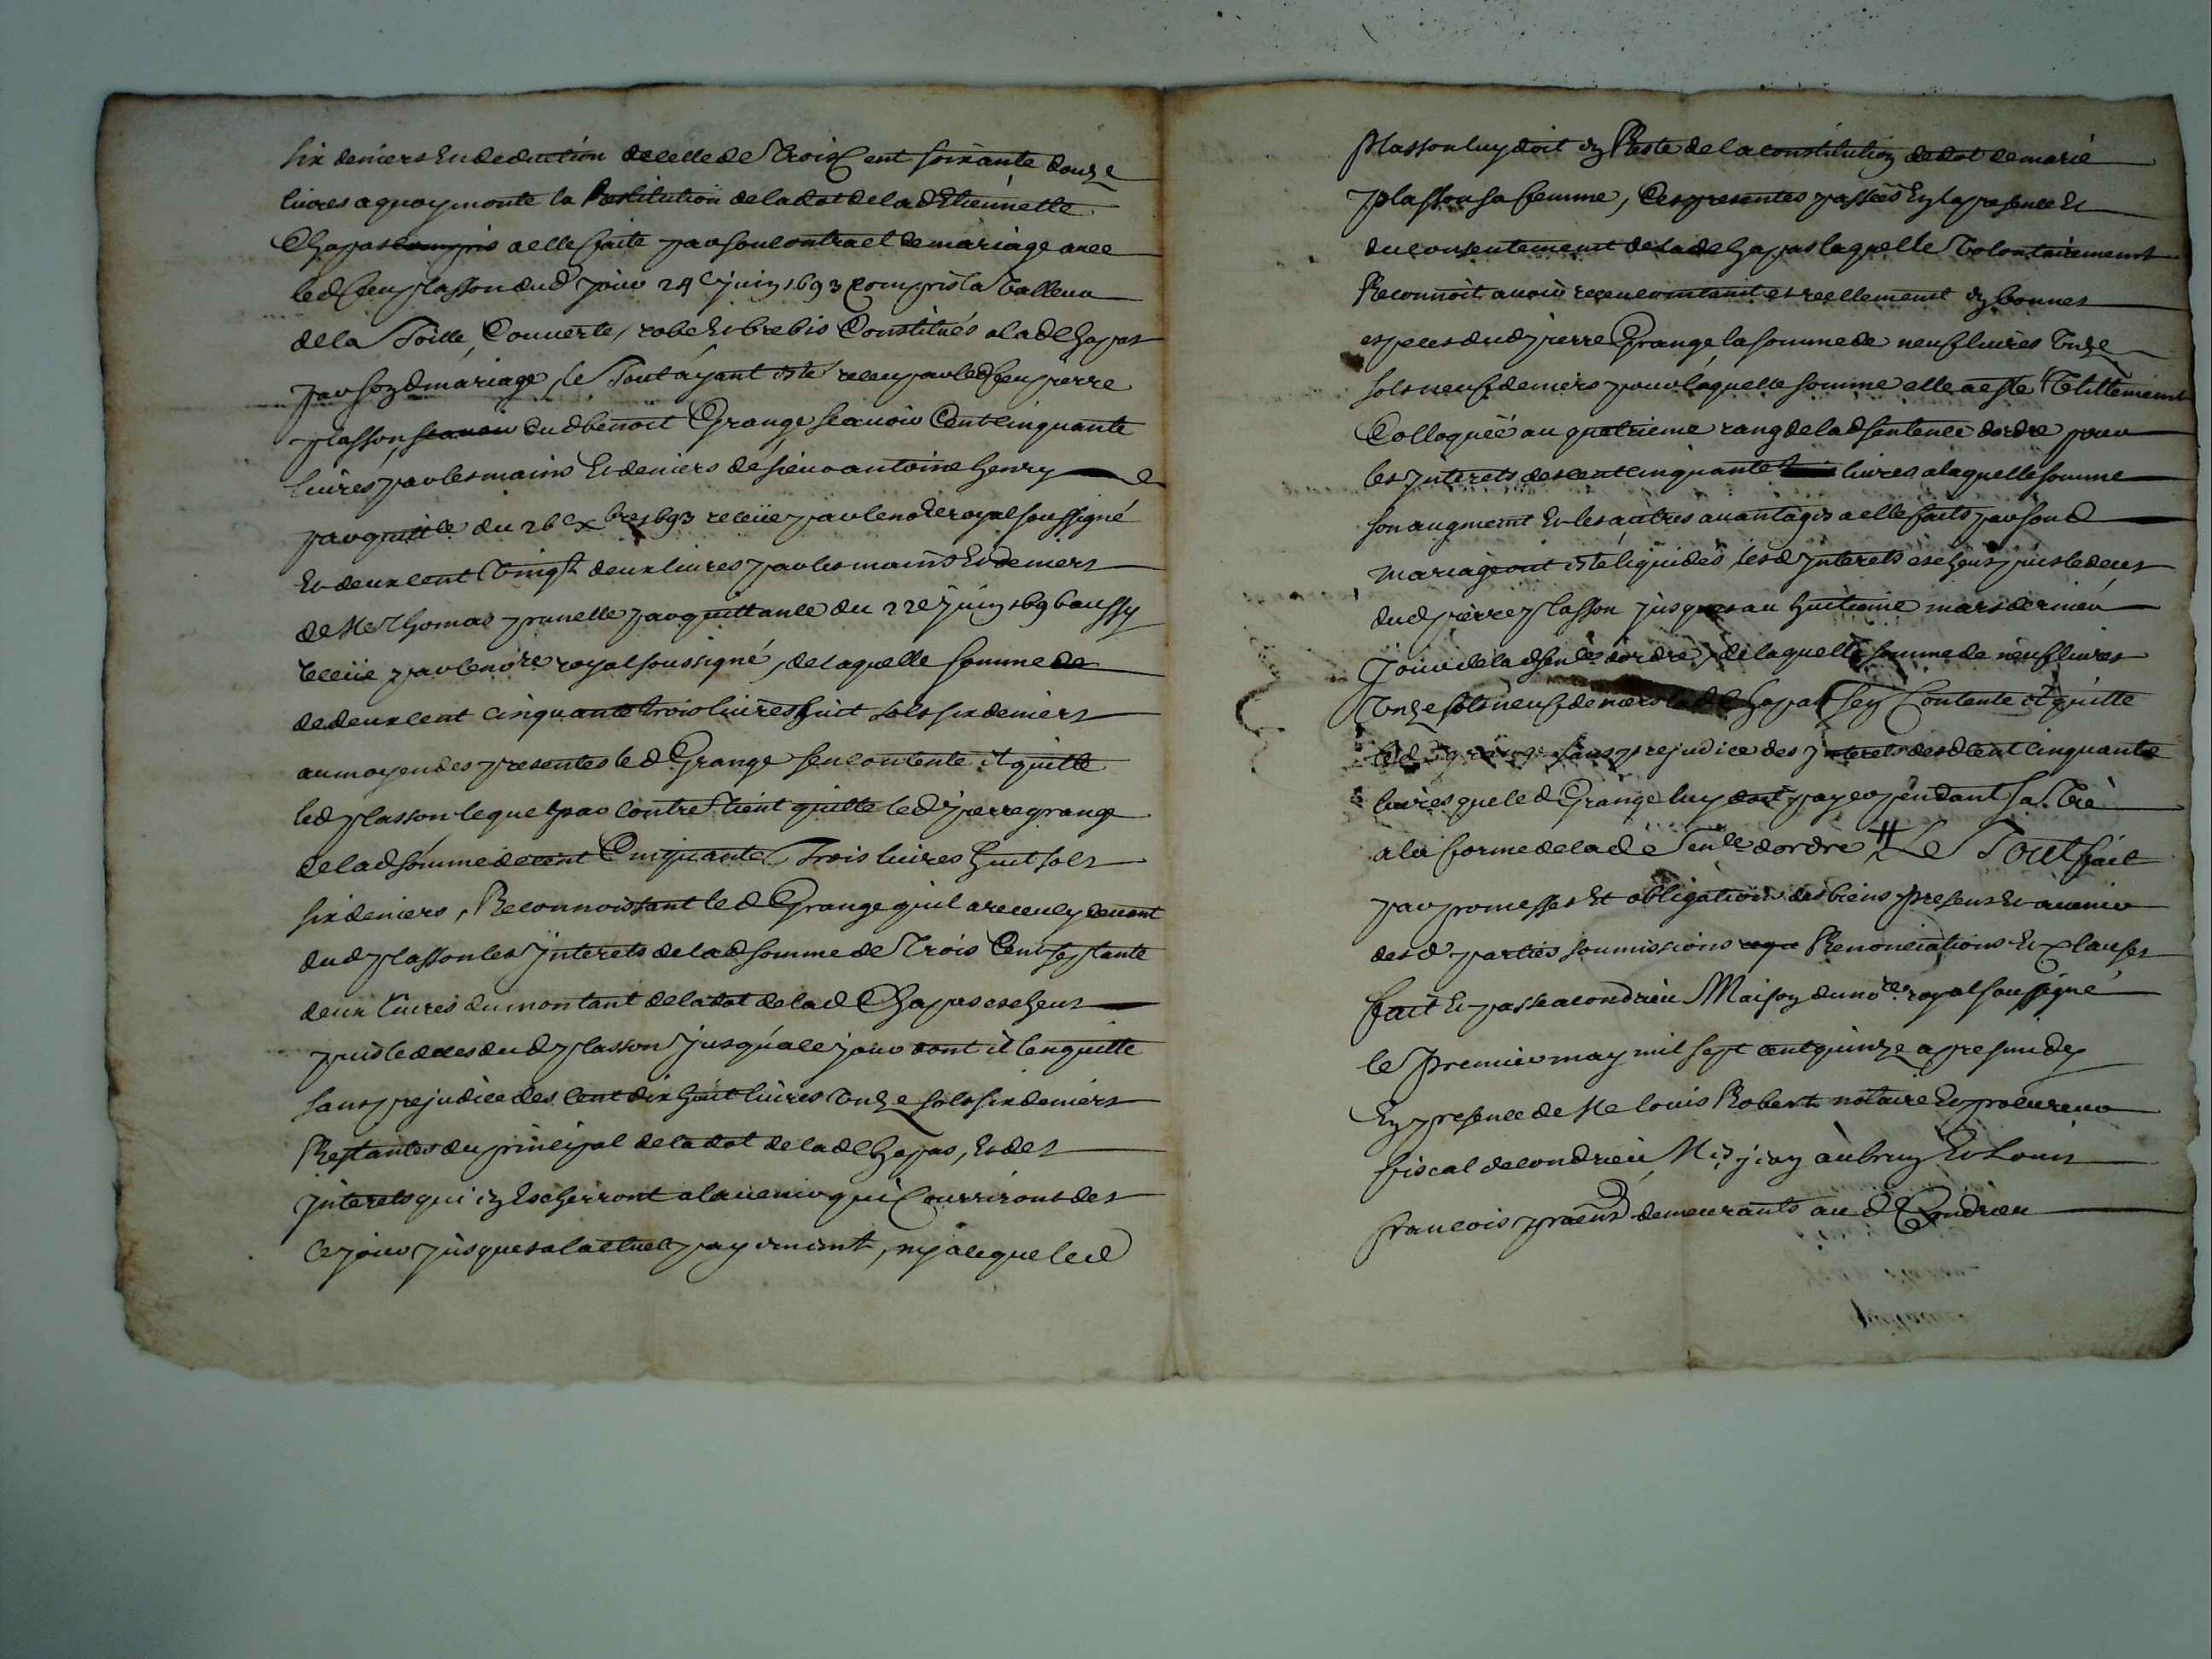 six deniers En deduction de celle de Trois Cent soixante douze
livres a quoy monte la Restitution de la dot de la d Etiennette
Chapas compris a elle faite par son contract de mariage avec
led feu plasson dud jour 24e juin 1693 compris la valleur
de la Toille, Couverte, robe Et brebis Constitués a la d Chapas
par son d mariage, le Tout ayant esté receu par led feu pierre
plasson, scavoir dud benoit Grange scavoir Cent cinquante
livres par les mains Et deniers de sieur antoine henry
par quitce du 26e xbre 1693 receüe par le nore royal soussigné
Et deux cent vingt deux livres par les mains Et deniers
de Me Thomas prunelle par quittance du 22e juin 1696 aussy
receüe par le nore royal soussigné, de laquelle somme de
de deux cent cinquante trois livres huit sols six deniers
au moyen des presentes led Grange sen contente et quitte
led plasson lequel par contre Tient quitte led pierre grange
de la d somme de cent Cinquante Trois livres huit sols
six deniers, Reconnoissant led Grange quil a receu cy devant
dud plasson les jnterets de la d somme de Trois Cent septante
deux livres du montant de la dot de la d Chapas escheus
puis le deces dud plasson jusqu'a ce jour dont il len quitte
sans prejudice des cent dix huit livres onze sols six deniers
Restantes du principal de la dot de la d Chapas, Et des
jnterets qui en Escherront a lavenir qui Courriront des
ce jour jusques a lactuel payement, ny a ce que led
plasson luy doit en Reste de la constitution de dot de marie
plasson sa femme, Ces presentes passées En la presence Et
du consentement de la d Chapas laquelle volontairement
Reconnoit avoir receu comtant et reellement en bonnes
especes dud pierre Grange la somme de neuf livres onze
sols neuf deniers pour laquelle somme elle a esté utillement
Colloquée au quatrieme rang de la d sentence dordre pour
les jnterets des cent cinquante livres a laquelle somme
son augment Et les autres avantages a elle faits par son d
mariage ont esté liquidés, lesd jnterets escheus puis le deces
dud pierre plasson jusques au huitieme mars dernier
Jour de la d sence dordre, de laquelle somme de neuf livres
onze sols neuf deniers la d Chapas sen Contente et quitte
led grange sans prejudice des jnterets desd cent cinquante
livres que led Grange luy doit payer pendant sa vie
a la forme de la d e Sence dordre # Le Tout fait
par promesses Et obligation des biens presens Et avenir
desd parties soumissions Renonciations Et clauses
fait Et passe a condrieu Maison du nore royal soussigné
le premier may mil sept cent quinze apres midy
En presence de Me louis Robert notaire Et procureur
fiscal de condrieu, aubruy Et Louis
francois demeurants au d Condrieu